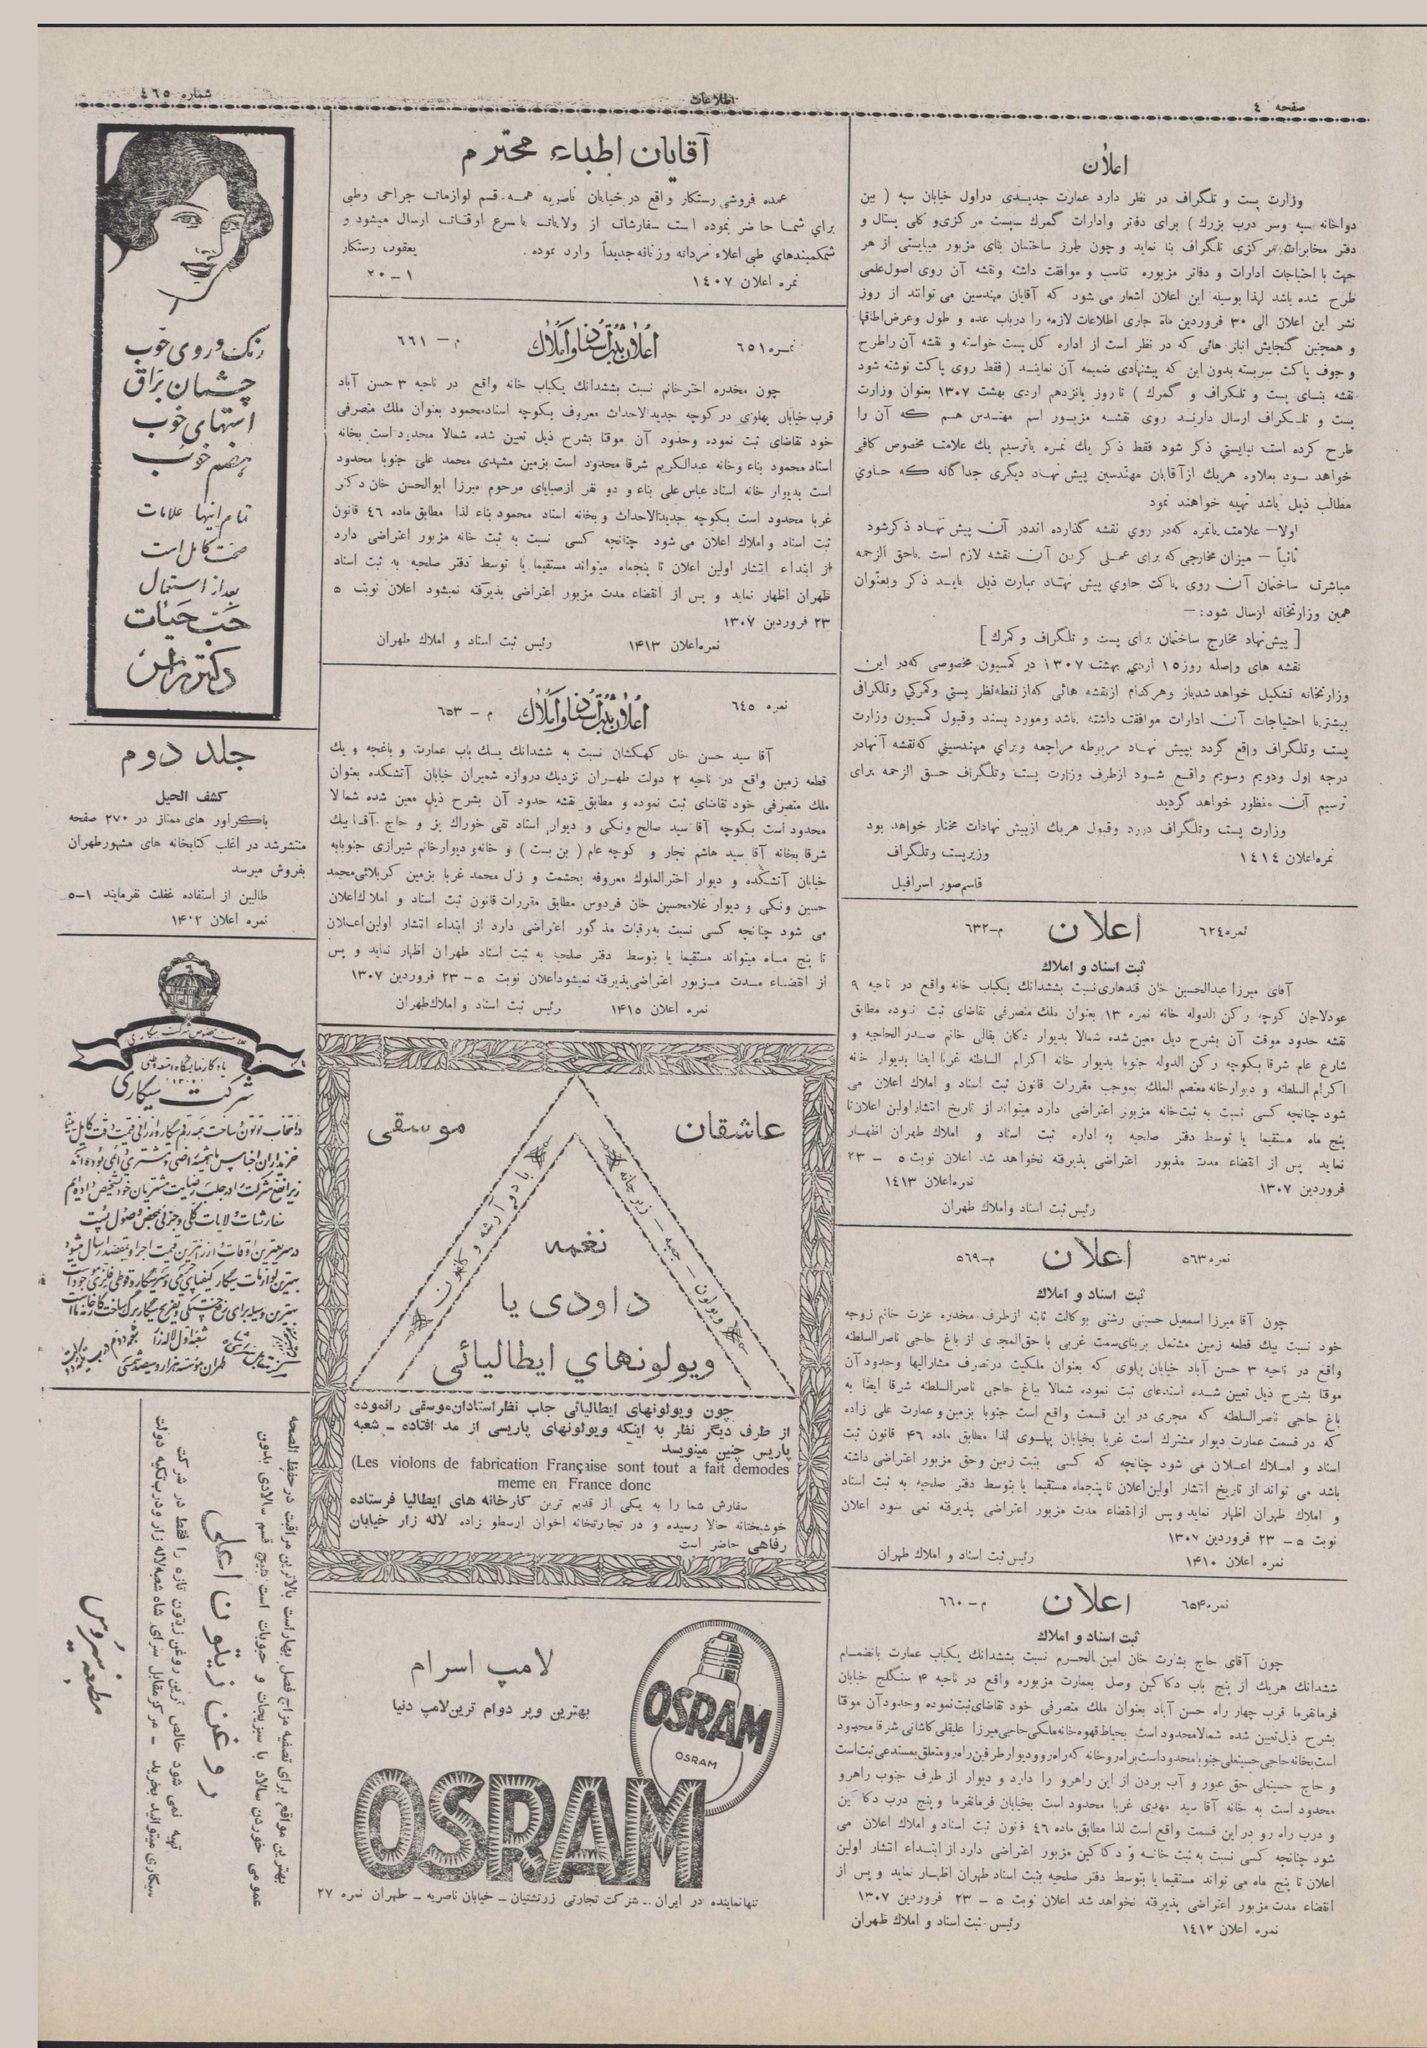 صفحه ٤
اطلاعات
شماره ٤٦٥
اعلان
وزارت پست و تلگراف در نظر دارد عمارت جدیدی در اول خیابان سپه ( بین
دواخانه سپه و سر درب بزرك ) برای دفاتر و ادارات گمرك پست مرکزی و کلی پستال و
دفتر مخابرات مرکزی تلگراف بنا نماید و چون طرز ساختمان بنای مزبور میبایستی از هر
جهت با احتیاجات ادارات و دفاتر مزبوره تناسب و موافقت داشته و نقشه آن روی اصول علمی
طرح شده باشد لهذا بوسیله این اعلان اشعار می شود که آقایان مهندسین می توانند از روز
نشر این اعلان الی ۳۰ فروردین ماه جاری اطلاعات لازمه را درباب عده و طول و عرض اطاقها
و همچنین گنجایش انبار هائی که در نظر است از اداره کل پست خواسته و نقشه آن را طرح
و جوف پاکت سربسته بدون این که پیشنهادی ضمیمه آن نمایند ( فقط روی پاکت نوشته شود
نقشه بنای پست و تلگراف و گمرك ) تا روز پانزدهم اردی بهشت ۱۳۰۷ بعنوان وزارت
پست و تلگراف ارسال دارند روی نقشه مزبور اسم مهندس هم که آن را
طرح کرده است نبایستی ذکر شود فقط ذکر یك نمره یا ترسیم یك علامت مخصوص کافی
خواهد بود بعلاوه هریك از آقایان مهندسین پیش نهاد دیگری جداگانه که حاوی
مطالب ذیل باشد تهیه خواهند نمود
اولا— علامت یا نمره که در روی نقشه گذارده اند در آن پیش نهاد ذکر شود
ثانیاً — میزان مخارجی که برای عملی کردن آن نقشه لازم است با حق الزحمه
مباشرت ساختمان آن روی پاکت حاوی پیش نهاد بعبارت ذیل باید ذکر و بعنوان
همین وزارتخانه ارسال شود:—
[ پیش نهاد مخارج ساختمان برای پست و تلگراف و گمرك ]
نقشه های واصله روز ۱۵ اردی بهشت ۱۳۰۷ در کمسیون مخصوصی که در این
وزارتخانه تشکیل خواهد شد باز و هر کدام از نقشه هائی که از نقطه نظر پستی و گمرکی و تلگرافی
بیشتر با احتیاجات آن ادارات موافقت داشته باشد و مورد پسند و قبول کمسیون وزارت
پست و تلگراف واقع گردد بپیش نهاد مربوطه مراجعه و برای مهندسینی که نقشه آنها در
درجه اول و دویم و سویم واقع شود از طرف وزارت پست و تلگراف حق الزحمه برای
ترسیم آن منظور خواهد گردید
وزارت پست و تلگراف در رد و قبول هریك از پیش نهادات مختار خواهد بود
نمره اعلان ۱٤۱٤
وزیر پست و تلگراف
قاسم صور اسرافیل
نمره ٦۲٤
اعلان
م-٦۳۲
ثبت اسناد و املاك
آقای میرزا عبدالحسین خان قندهاری نسبت بششدانك یکباب خانه واقع در ناحیه ۹
عودلاجان کوچه رکن الدوله خانه نمره ۱۳ بعنوان ملك متصرفی تقاضای ثبت نموده مطابق
نقشه حدود موقت آن بشرح ذیل معین شده شمالا بدیوار دکان بقالی خانم صدر الحاجیه و
شارع عام شرقا بکوچه رکن الدوله جنوبا بدیوار خانه اکرام السلطنه غربا ایضا بدیوار خانه
اکرام السلطنه و دیوار خانه معتصم الملك بموجب مقررات قانون ثبت اسناد و املاك اعلان می
شود چنانچه کسی نسبت به ثبت خانه مزبور اعتراضی دارد میتواند از تاریخ انتشار اولین اعلان تا
پنج ماه مستقیما یا توسط دفتر صلحیه به اداره ثبت اسناد و املاك طهران اظهار
نماید پس از انقضاء مدت مذبور اعتراضی پذیرفته نخواهد شد اعلان نوبت ٥ – ۲۳
فروردین ۱۳۰۷
نمره اعلان ۱٤۱۳
رئیس ثبت اسناد و املاك طهران
نمره ٥٦۳
اعلان
م-٥٦۹
ثبت اسناد و املاك
چون آقا میرزا اسمعیل حسینی رشتی بوکالت ثابته از طرف مخدره عزت خانم زوجه
خود نسبت بیك قطعه زمین مشتمل بر بنای سمت غربی با حق المجری از باغ حاجی ناصر السلطنه
واقع در ناحیه ۳ حسن آباد خیابان پهلوی که بعنوان ملکیت در تصرف مشارالیها و حدود آن
موقتا بشرح ذیل تعیین شده استدعای ثبت نموده شمالا بباغ حاجی ناصرالسلطنه شرقا ایضا به
باغ حاجی ناصرالسلطنه که مجری در این قسمت واقع است جنوبا بزمین و عمارت علی زاده
که در قسمت عمارت دیوار مشترك است غربا بخیابان پهلوی لذا مطابق ماده ٤٦ قانون ثبت
اسناد و املاك اعلان می شود چنانچه که کسی بثبت زمین و حق مزبور اعتراضی داشته
باشد می تواند از تاریخ انتشار اولین اعلان تا پنجماه مستقیما یا بتوسط دفتر صلحیه به ثبت اسناد
و املاك طهران اظهار نماید و پس از انقضاء مدت مزبور اعتراضی پذیرفته نمی شود اعلان
نوبت ٥ – ۲۳ فروردین ۱۳۰۷
نمره اعلان ۱٤۱۰
رئیس ثبت اسناد و املاك طهران
نمره ٦٥٤
اعلان
م-٦٦۰
ثبت اسناد و املاك
چون آقای حاج بشارت خان امین الحرم نسبت بششدانك یکباب عمارت بانضمام
ششدانك هریك از پنج باب دکاکین وصل بعمارت مزبوره واقع در ناحیه ٤ سنگلج خیابان
فرمانفرما قرب چهار راه حسن آباد بعنوان ملك متصرفی خود تقاضای ثبت نموده و حدود آن موقتا
بشرح ذیل تعیین شده شمالا محدود است بحیاط قهوه خانه ملکی حاجی میرزا علینقلی کاشانی شرقا محدود
است بخانه حاجی حسینعلی جنوبا محدود است براه رو خانه که راه رو و دیوار طرفین راه رو متعلق بمستدعی ثبت است
و حاج حسینعلی حق عبور و آب بردن از این راهرو را دارد و دیوار از طرف جنوب راهرو
محدود است به خانه آقا سید مهدی غربا محدود است بخیابان فرمانفرما و پنج درب دکاکین
و درب راه رو در این قسمت واقع است لذا مطابق ماده ٤٦ قانون ثبت اسناد و املاك اعلان می
شود چنانچه کسی نسبت به ثبت خانه و دکاکین مزبور اعتراضی دارد از ابتداء انتشار اولین
اعلان تا پنج ماه می تواند مستقیما یا بتوسط دفتر صلحیه بثبت اسناد طهران اظهار نماید و پس از
انقضاء مدت مزبور اعتراضی پذیرفته نخواهد شد اعلان نوبت ٥ – ۲۳ فروردین ۱۳۰۷
نمره اعلان ۱٤۱۲
رئیس ثبت اسناد و املاك طهران
آقایان اطباء محترم
عمده فروشی رستکار واقع در خیابان ناصریه همه قسم لوازمات جراحی و طبی
برای شما حاضر نموده است سفارشات از ولایات با سرع اوقات ارسال میشود و
شکمبندهای طبی اعلاء مردانه و زنانه جدیداً وارد نموده.
یعقوب رستکار
نمره اعلان ۱٤۰۷
۱–۲۰
نمره ٦٥۱
اعلان ثبت اسناد و املاك
م – ٦٦۱
چون مخدره اختر خانم نسبت بششدانك یکباب خانه واقع در ناحیه ۳ حسن آباد
قرب خیابان پهلوی در کوچه جدید الاحداث معروف بکوچه استاد محمود بعنوان ملك متصرفی
خود تقاضای ثبت نموده و حدود آن موقتا بشرح ذیل تعین شده شمالا محدود است بخانه
استاد محمود بناء و خانه عبدالکریم شرقا محدود است بزمین مشهدی محمد علی جنوبا محدود
است بدیوار خانه استاد عباس علی بناء و دو نفر از صبایای مرحوم میرزا ابوالحسن خان دکتر
غربا محدود است بکوچه جدید الاحداث و بخانه استاد محمود بناء لذا مطابق ماده ٤٦ قانون
ثبت اسناد و املاك اعلان می شود چنانچه کسی نسبت به ثبت خانه مزبور اعتراضی دارد
از ابتداء انتشار اولین اعلان تا پنجماه میتواند مستقیما یا توسط دفتر صلحیه به ثبت اسناد
طهران اظهار نماید و پس از انقضاء مدت مزبور اعتراضی پذیرفته نمیشود اعلان نوبت ٥
۲۳ فروردین ۱۳۰۷
نمره اعلان ۱٤۱۳
رئیس ثبت اسناد و املاك طهران
نمره ٦٤٥
اعلان ثبت اسناد و املاك
م – ٦٥۳
آقا سید حسن خان کهکشان نسبت به ششدانك یك باب عمارت و باغچه و یك
قطعه زمین واقع در ناحیه ۲ دولت طهران نزدیك دروازه شمیران خیابان آتشکده بعنوان
ملك متصرفی خود تقاضای ثبت نموده و مطابق نقشه حدود آن بشرح ذیل معین شده شمالا
محدود است بکوچه آقا سید صالح ونکی و دیوار استاد تقی خوراك پز و حاج آقا بیك
شرقا بخانه آقا سید هاشم نجار و کوچه عام ( بن بست ) و خانه و دیوار خانم شیرازی جنوبا به
خیابان آتشکده و دیوار اختر الملوك معروفه بحشمت و زل محمد غربا بزمین کربلائی محمد
حسین ونکی و دیوار غلامحسین خان فردوس مطابق مقررات قانون ثبت اسناد و املاك اعلان
می شود چنانچه کسی نسبت به رقبات مذکور اعتراضی دارد از ابتداء انتشار اولین اعلان
تا پنج ماه میتواند مستقیما یا بتوسط دفتر صلحیه به ثبت اسناد طهران اظهار نماید و پس
از انقضاء مدت مزبور اعتراضی پذیرفته نمیشود اعلان نوبت ٥ – ۲۳ فروردین ۱۳۰۷
نمره اعلان ۱٤۱٥
رئیس ثبت اسناد و املاك طهران
عاشقان
موسقی
ویولون – جعبه – زیر چانه
با دو آرشه و کلفون
نغمه
داودی یا
ویولونهای ایطالیائی
چون ویولونهای ایطالیائی جلب نظر استادان موسقی را نموده
از طرف دیگر نظر به اینکه ویولونهای پاریسی از مد افتاده – شعبه
پاریس چنین مینویسد
(Les violons de fabrication Française sont tout a fait demodes
meme en France donc
سفارش شما را به یکی از قدیم ترین کارخانه های ایطالیا فرستاده
خوشبختانه حالا رسیده و در تجارتخانه اخوان ارسطو زاده لاله زار خیابان
رفاهی حاضر است
لامپ اسرام
بهترین و پر دوام ترین لامپ دنیا
OSRAM
OSRAM
OSRAM
تنها نماینده در ایران – شرکت تجارتی زرتشتیان – خیابان ناصریه – طهران نمره ۲۷
رنك و روی خوب
چشمان براق
اشتهای خوب
هضم خوب
تمام اینها علامات
صحت کامل است
بعد از استعمال
حب حیات
دکتر راس
جلد دوم
کشف الحیل
با گراور های ممتاز در ۲۷۰ صفحه
منتشر شد در اغلب کتابخانه های مشهور طهران
بفروش میرسد
طالبین از استفاده غفلت نفرمایند ۱–٥
نمره اعلان ۱٤۰۲
علامت مخصوص شرکت سیگاری
شرکت سیگاری
بهترین مواقع برای تصفیه مزاج فصل بهار است بالاترین مراقبت در حفظ الصحه
عمومی خوردن سالاد با سبزیجات و حبوبات است هیچ قسم سالادی بدون
روغن زیتون اعلی
تهیه نمی شود خالص ترین روغن زیتون تازه را فقط در شرکت
سیگاری میتوانید بخرید – مرکز مقابل سرای شاه شعبه لاله زار و درب تکیه دولت
مطبعه سیروس